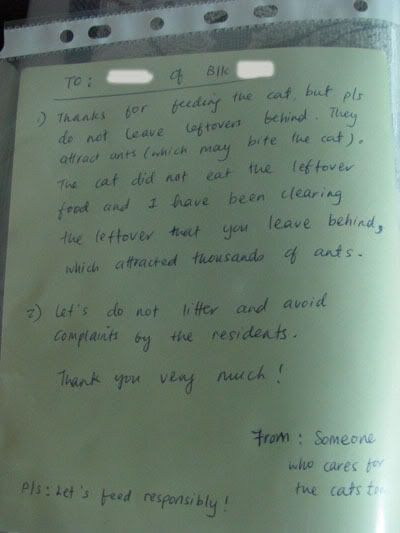 TO: of Blk
1) Thanks for feeding the cat, but pls
do not leave leftovers behind. They
attract ants (which may bite the cat).
The cat did not eat the leftover
food and I have been clearing
the leftover that you leave behind,
which attracted thousands of ants.
2) Let's do not litter and avoid
complaints by the residents.
Thank you very much!
From: Someone
who cares for
the cats too
P/s: Let's feed responsibly!